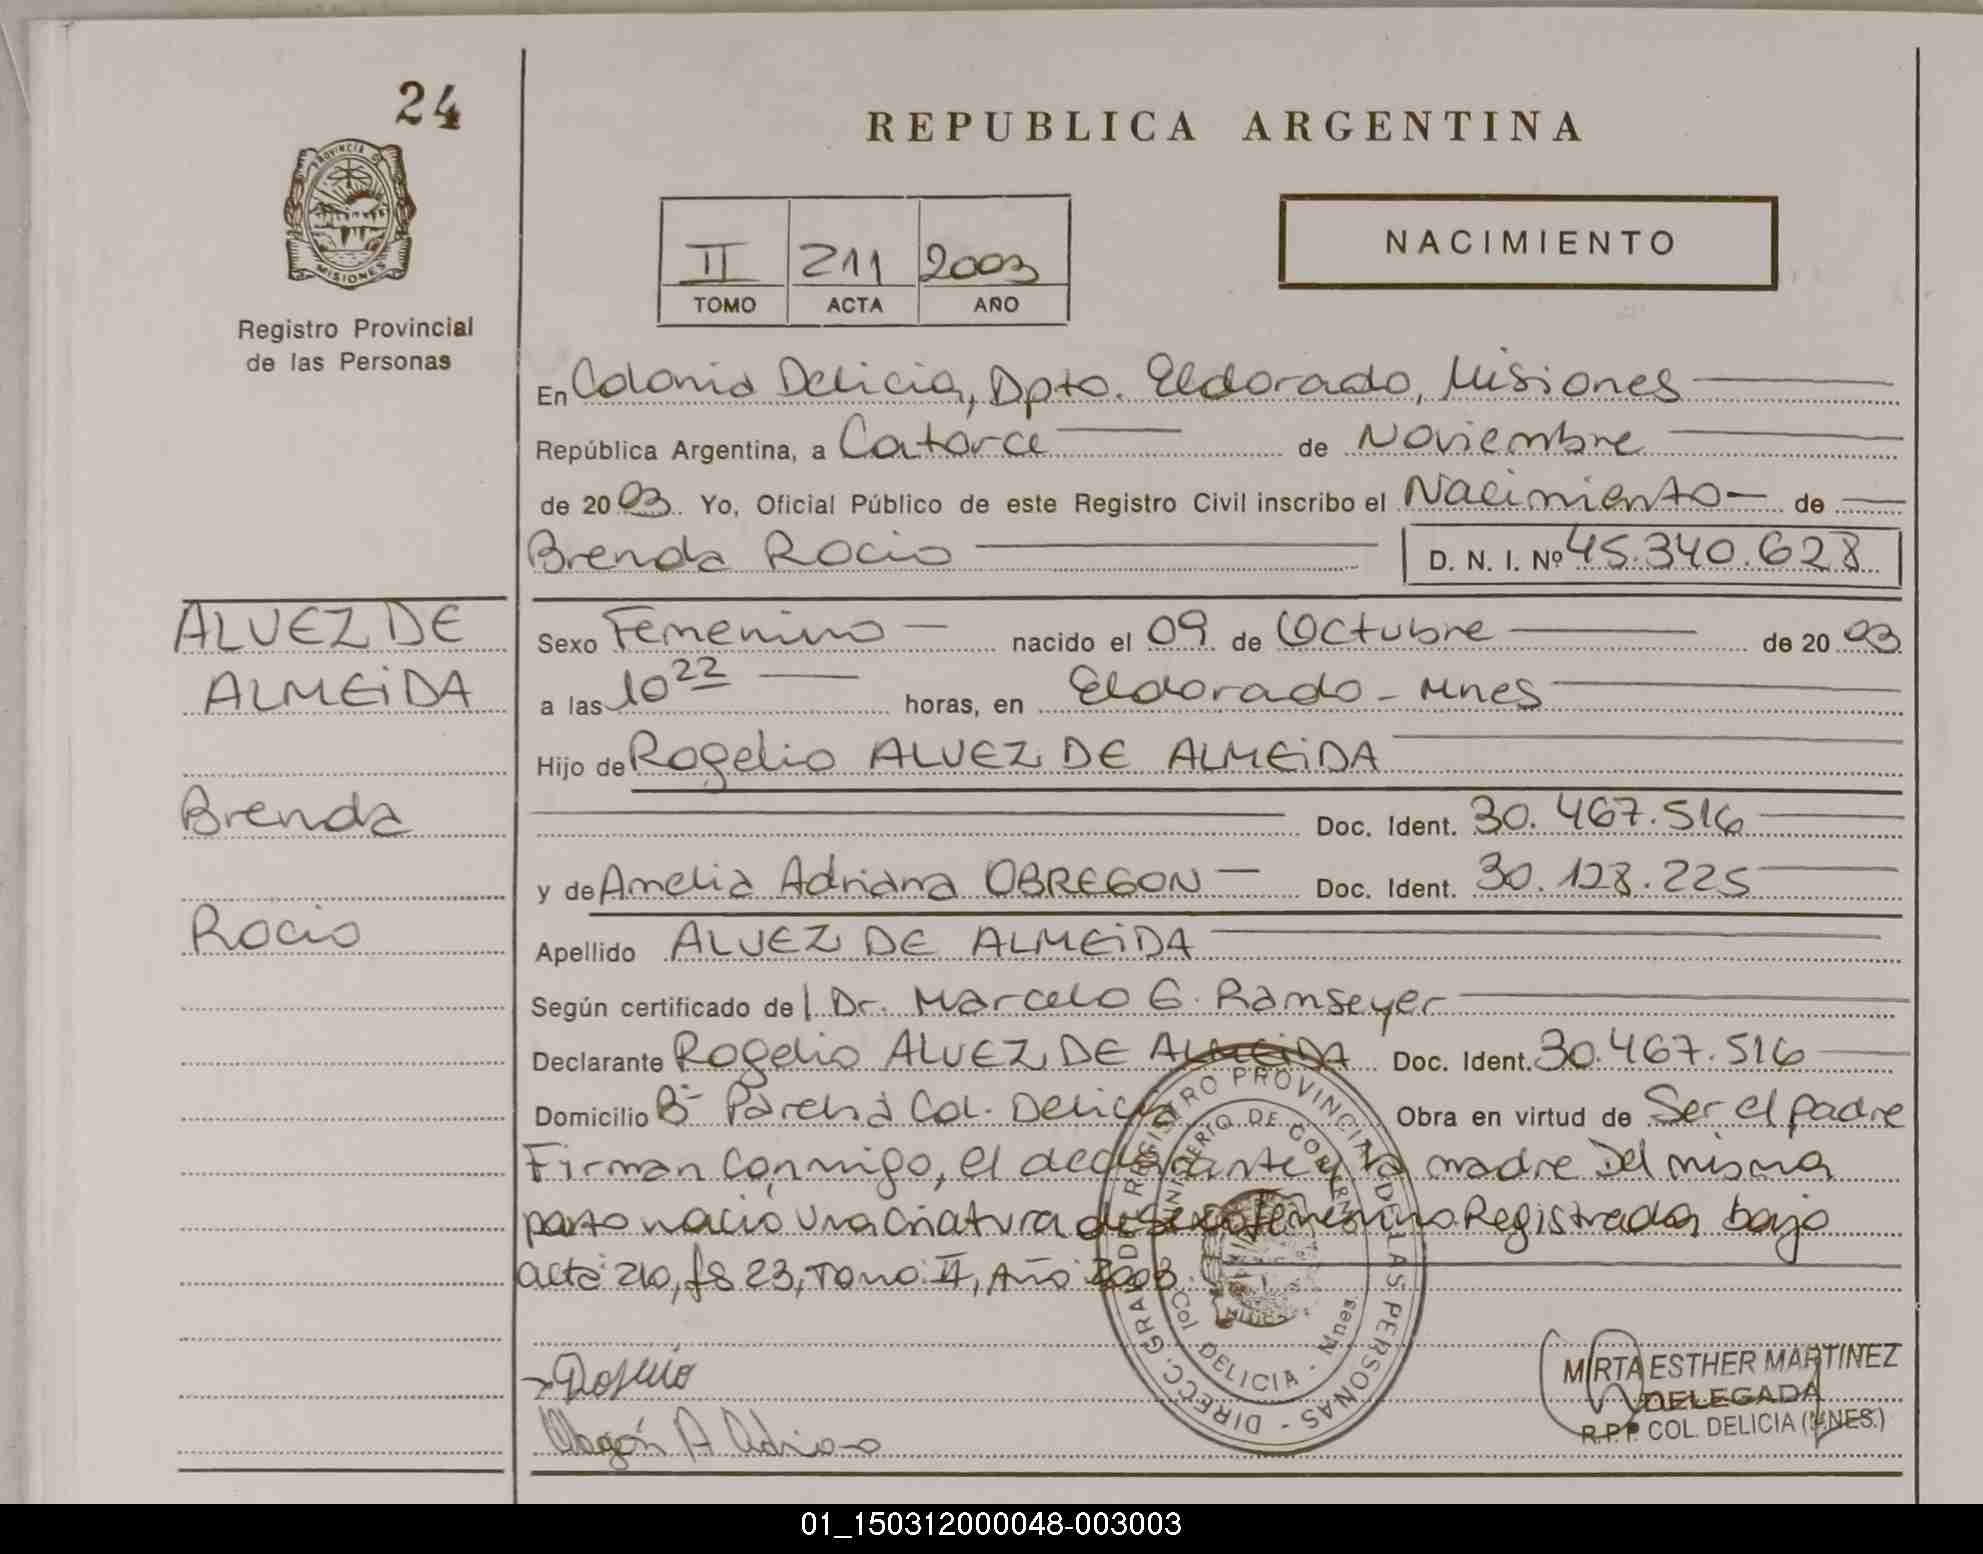 24
PROVINCIA DE
MISIONES
Registro Provincial
de las Personas
REPUBLICA ARGENTINA
II 211 2003
TOMO ACTA AÑO
NACIMIENTO
En Colonia Delicia, Dpto. Eldorado, Misiones
República Argentina, a Catorce de Noviembre
de 2003. Yo, Oficial Público de este Registro Civil inscribo el Nacimiento de
Brenda Rocio D. N. I. Nº 45.340.628
ALVEZ DE
ALMEiDA
Brenda
Rocio
Sexo Femenino nacido el 09 de Octubre de 2003
a las 10 22 horas, en Eldorado - Mnes
Hijo de Rogelio ALVEZ DE ALMEiDA
Doc. Ident. 30.467.516
y de Amelia Adriana OBREGON Doc. Ident. 30.128.225
Apellido ALVEZ DE ALMEiDA
Según certificado de l Dr. Marcelo G. Ramseyer
Declarante Rogelio ALVEZ DE ALMEiDA Doc. Ident. 30.467.516
Domicilio Bº Col. Delicia Obra en virtud de Ser el padre
Firman conmigo, el declarante y la madre Del misma
parto nació una criatura de sexo femenino Registrada bajo
acta 210, fs 23, Tomo II, Año 2003
DIRECC. GRAL. DE REGISTRO PROVINCIAL DE LAS PERSONAS
MINISTERIO DE GOBIERNO
Col. DELICIA - Mnes.
Rogelio
Obregón A Adriana
MIRTA ESTHER MARTINEZ
DELEGADA
R.P.P. COL. DELICIA (MNES.)
01_150312000048-003003